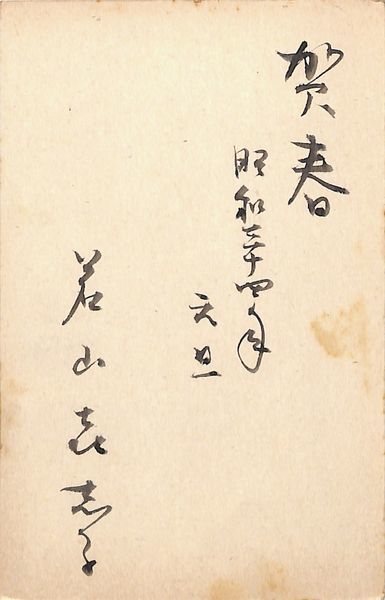 賀春
昭和三十四年
元旦
若山喜志子